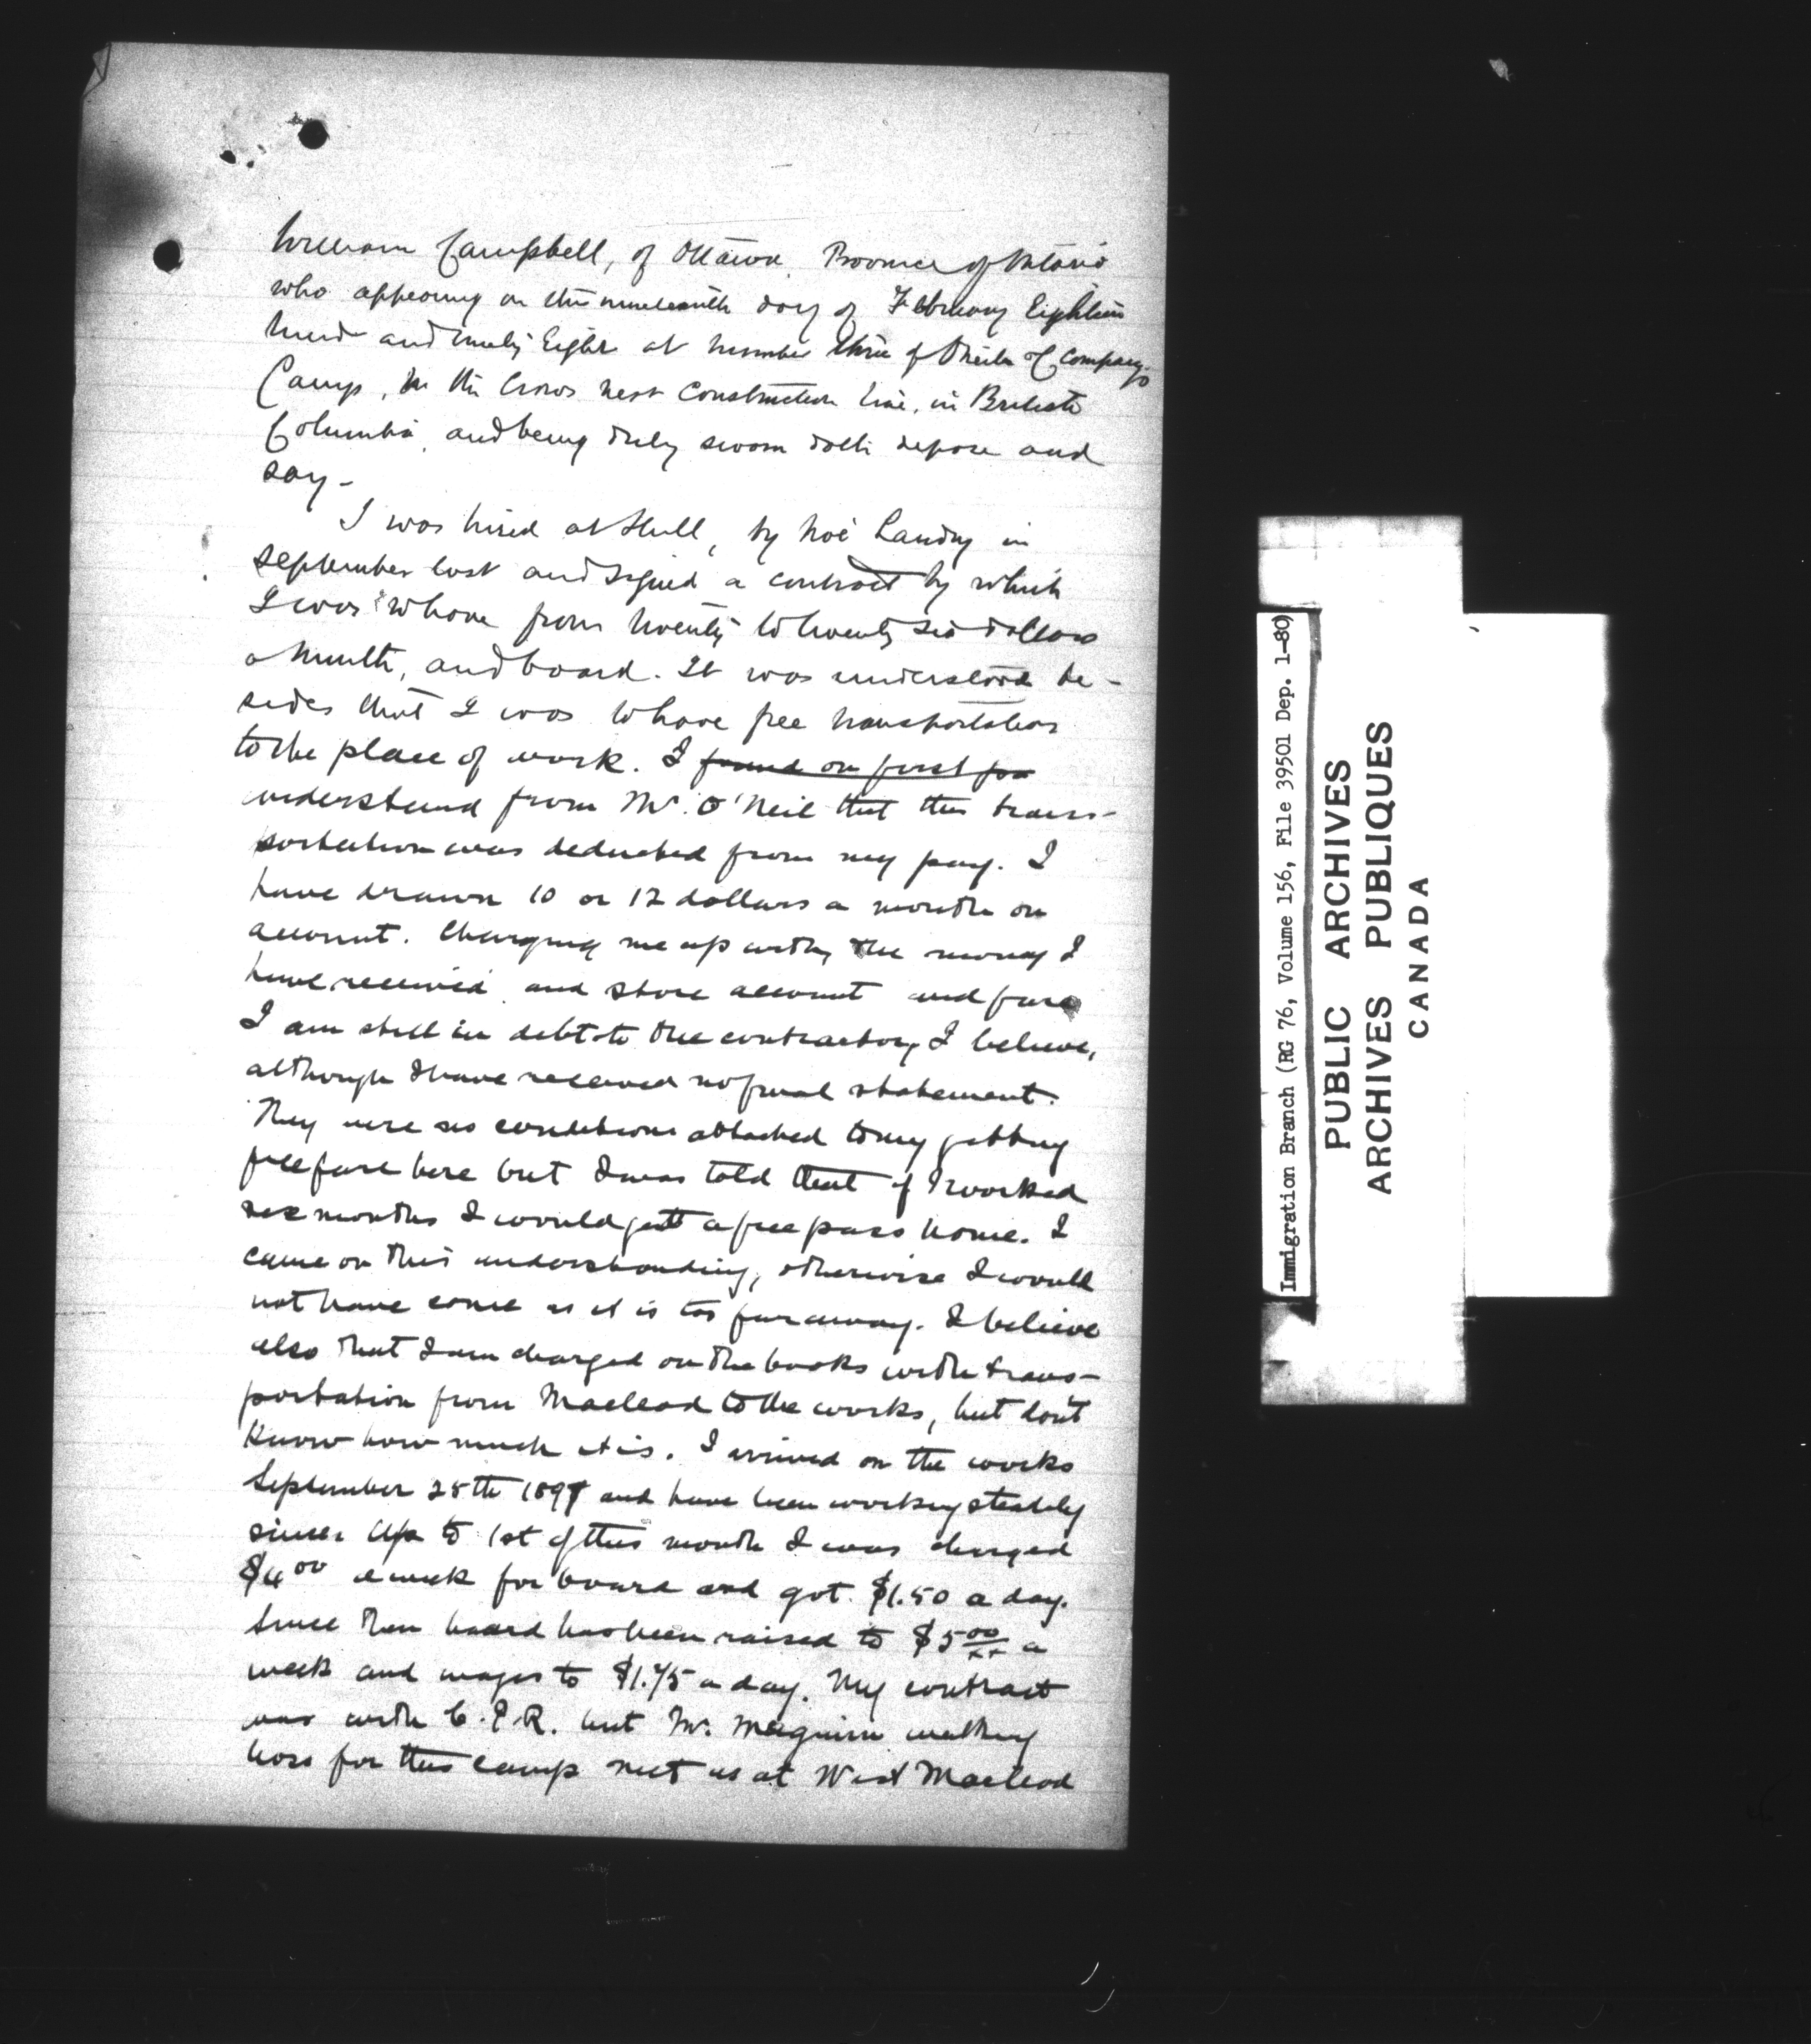 William Campbell, of Ottawa, Province of Ontario
who appearing on this nineteenth day of February Eighteen
hund and ninety Eight at number three of Company
Camp, in the Crows nest Construction line, in British
Columbia, and being duly sworn doth depose and
say-
I was hired at Hull, by Noé Landry in
September last and signed a contract by which
I was to have from twenty to twenty six dollars
a month, and board. It was understood be-
sides that I was to have free transportation
to the place of work. I found on first pa
understand from Mr. O'Neil that this trans-
portation was deducted from my pay. I
have drawn 10 or 12 dollars a month on
account. Charging me up with the money I
have received and store account and fare
I am still in debt to the contractors I believe,
although I have received no final statement.
They were no conditions attached to my getting
free fare here but I was told that if I worked
six months I would get a free pass home. I
came on this understanding, otherwise I would
not have come as it is too far away. I believe
also that I am charged on the books with trans-
portation from Macleod to the works, but don't
know how much it is. I arrived on the works
September 28th 1897 and have been working steadily
since. Up to 1st of this month I was charged
$4.00 a week for board and got $1.50 a day.
Since then board has been raised to $5 00/xx a
week and wages to $1.75 a day. My contract
was with C.P.R. but Mr. Maguire walking
boss for this camp met us at West Macleod
Immigration Branch (RG 76, Volume 156, File 39501 Dep. 1-80)
PUBLIC ARCHIVES
ARCHIVES PUBLIQUES
CANADA